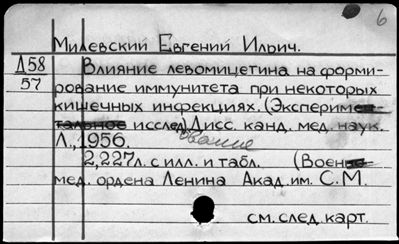 6
Милевский Евгений Ильич.
Д58 Влияние левомицетина на форми-
57 рование иммунитета при некоторых
кишечных инфекциях. (Эксперимен-
тальное исслед) Дисс. канд. мед. наук.
Л., 1956.
2,227л. с илл. и табл. (Военно-
мед. ордена Ленина Акад. им. С.М.
см. след. карт.